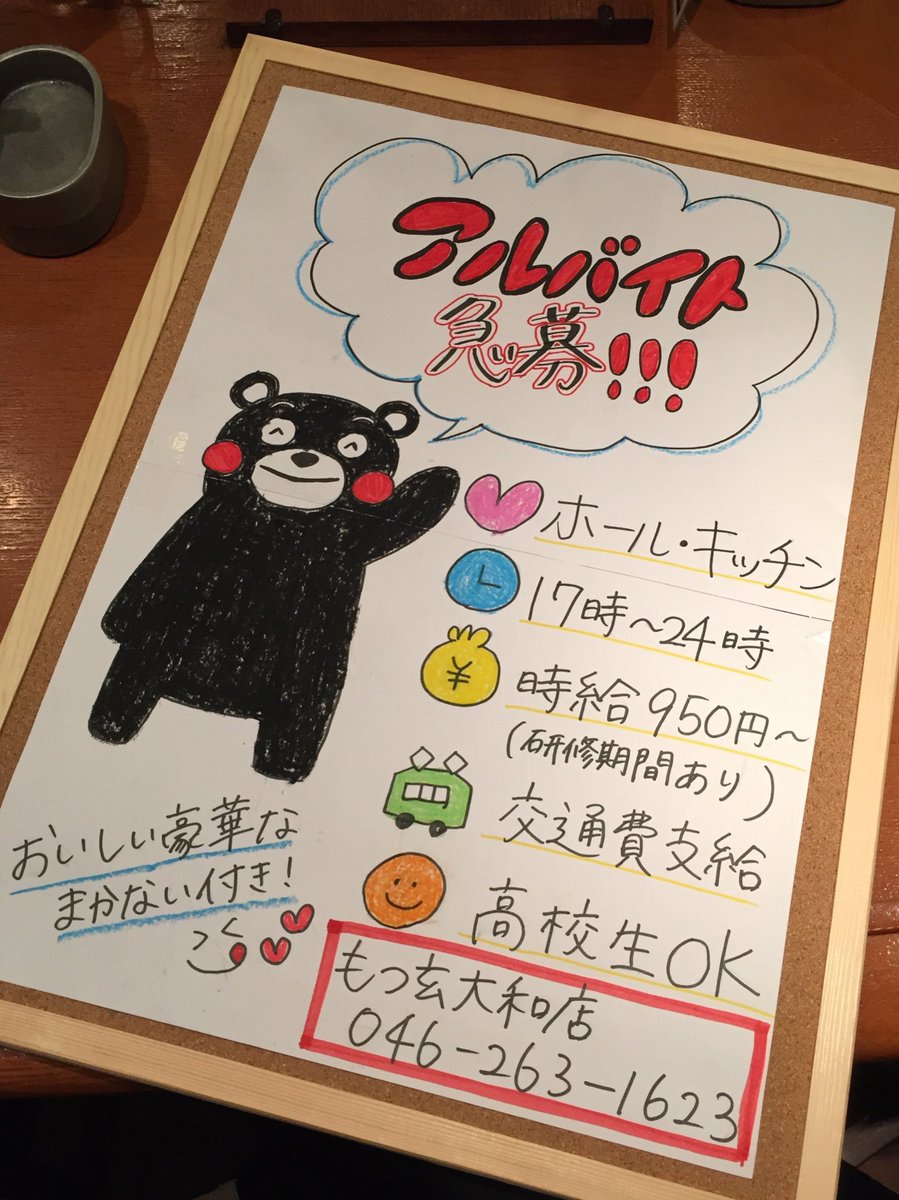 アルバイト
急募!!!
ホール・キッチン
17時～24時
¥
時給950円～
(研修期間あり)
交通費支給
高校生OK
おいしい豪華な
まかない付き!
もつ玄大和店
046-263-1623